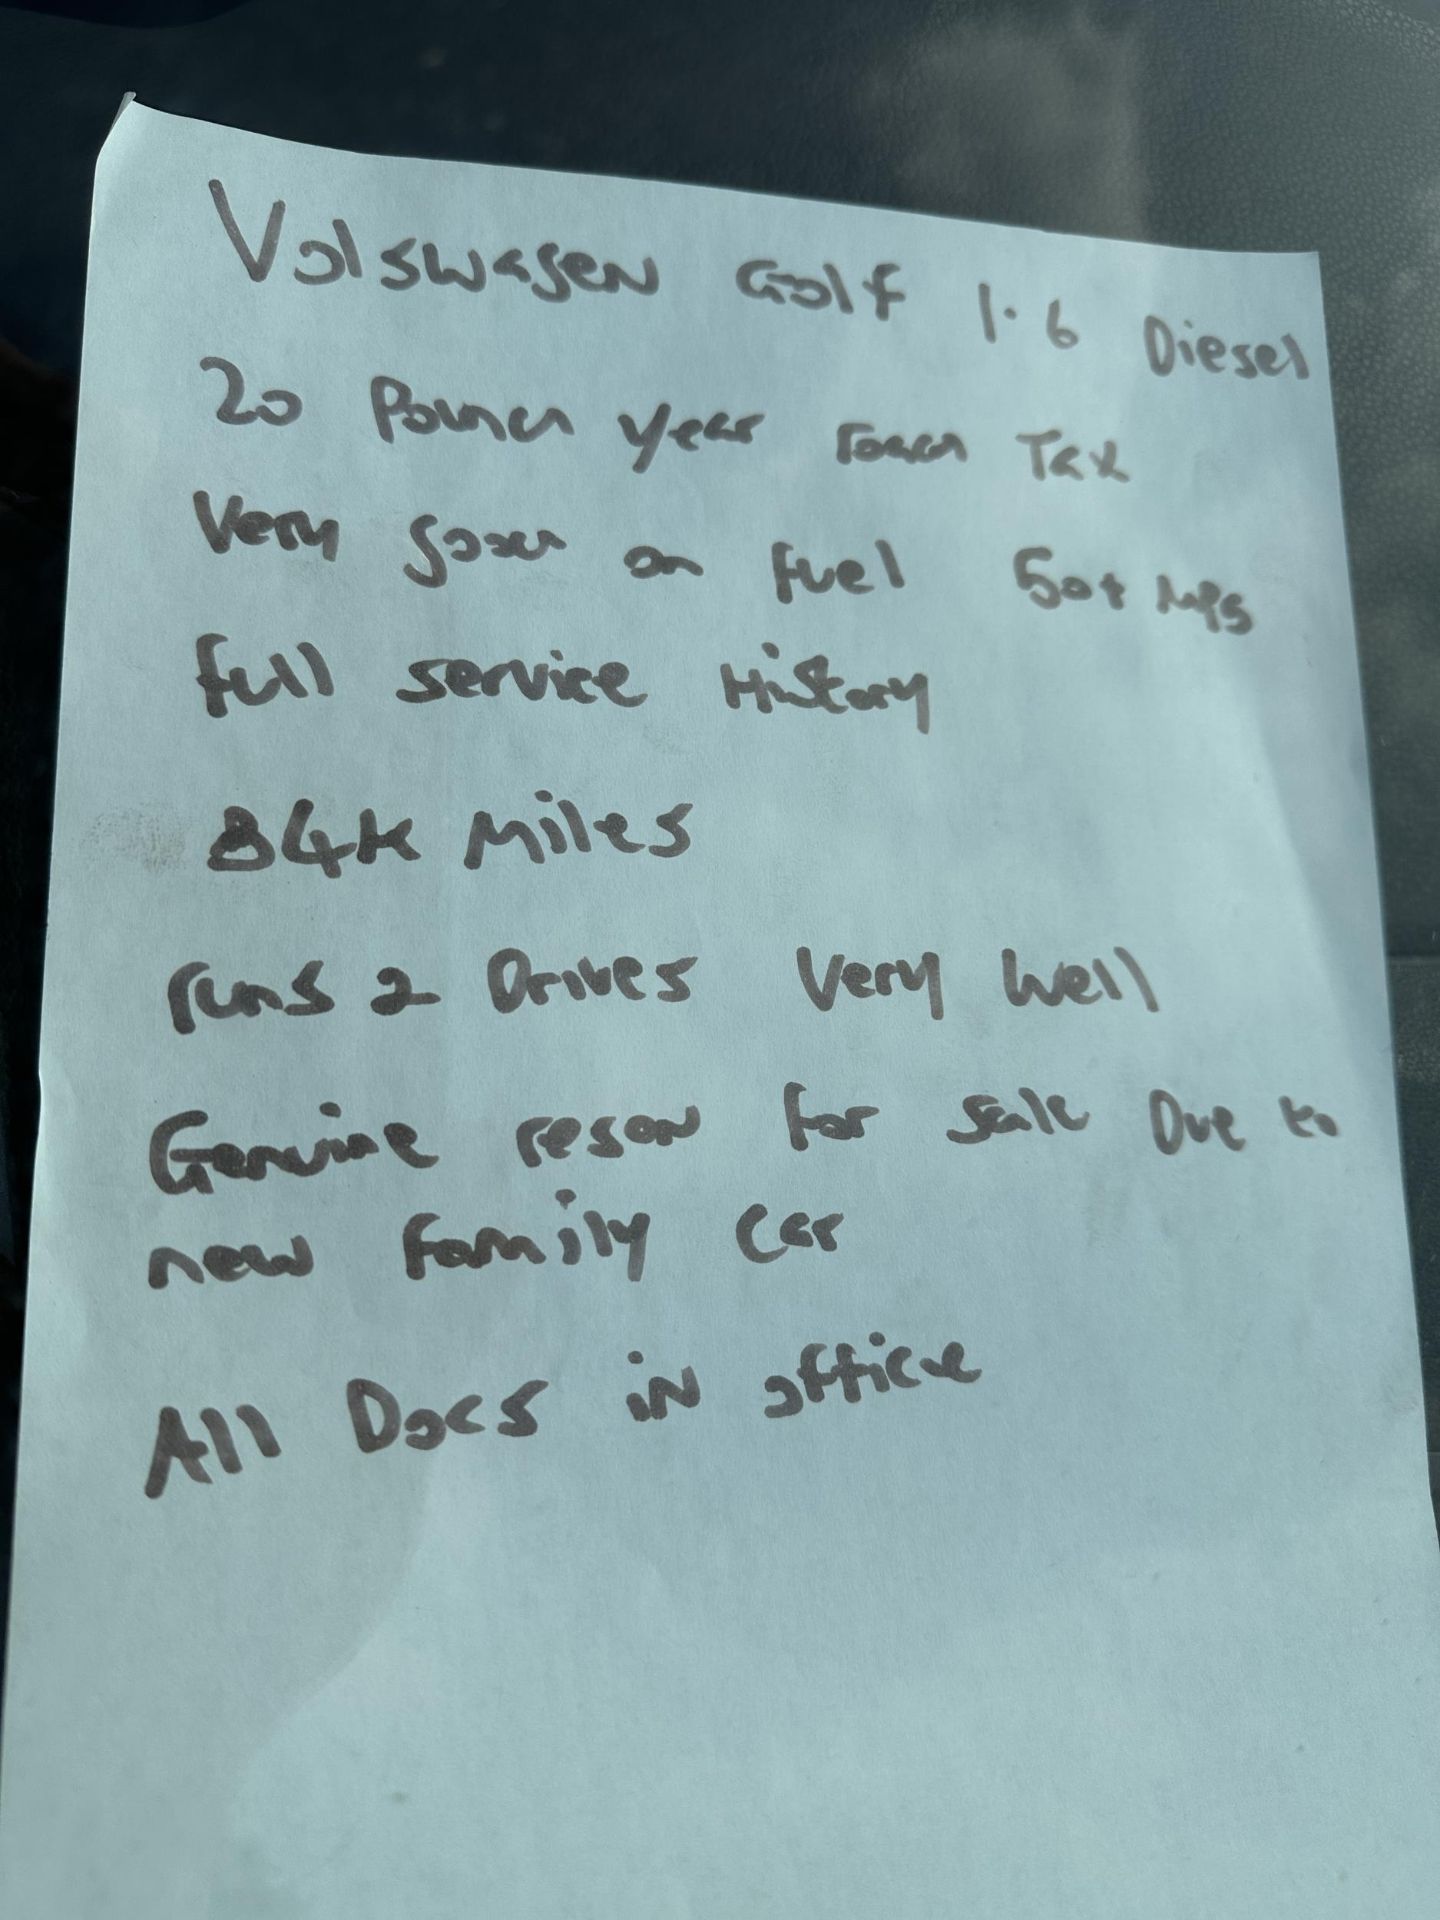 Volswagen Golf 1.6 Diesel
20 Pound year road Tax
Very good on fuel 50+ Mpg
full service History
84K Miles
runs & Drives Very Well
Genuine reson for sale Due to
new family car
All Docs in office